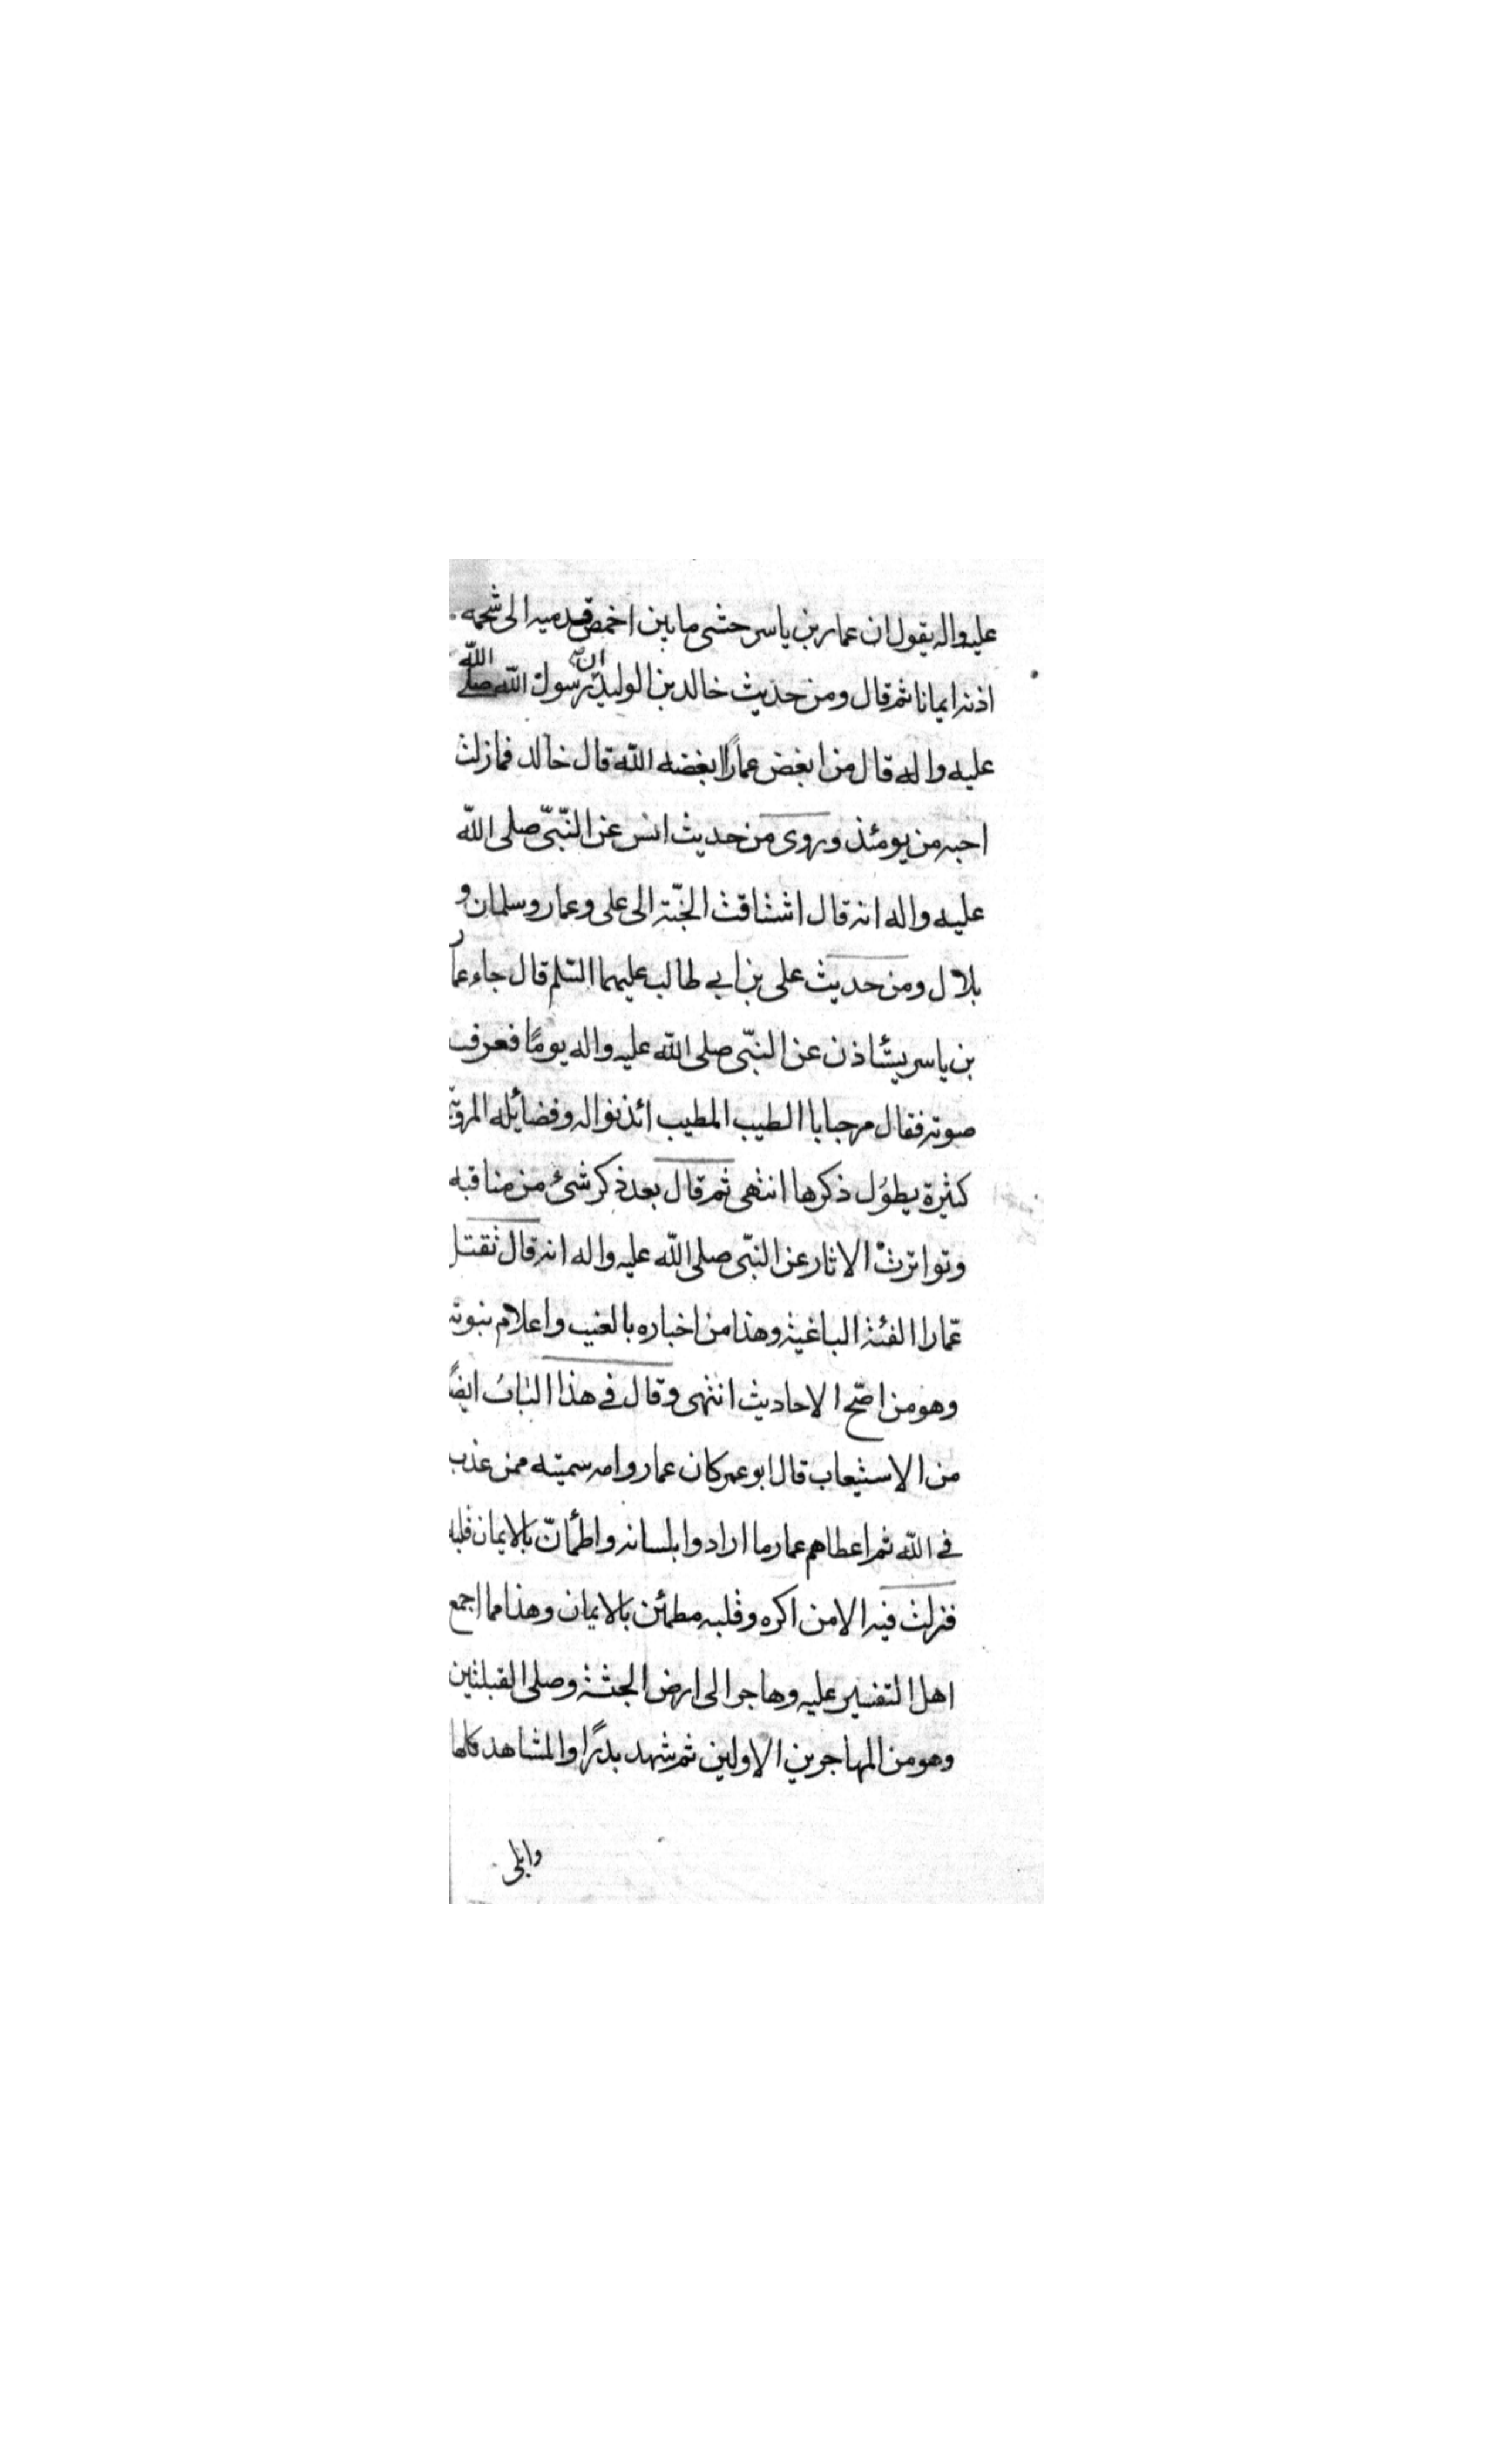 عليه واله يقول ان عمار بن ياسر حشى ما بين اخمص قدميه الى شحمه
اذنه ايمانا ثم قال ومن حديث خالد بن الوليد ان رسول الله صلى الله
عليه واله قال من ابغض عمارًا ابغضه الله قال خالد فما زلت
احبه من يومئذ وروى من حديث انس عن النّبىّ صلى الله
عليه واله انه قال اشتاقت الجنّة الى على وعمار وسلمان و
بلال ومن حديث على بن ابي طالب عليهما السّلم قال جاء عمار
بن ياسر يستاذن عن النبّى صلى الله عليه واله يومًا فعرف
صوته فقال مرحبا بالطيب المطيب ائذنوا له وفضائله المرويّة
كثيرة يطول ذكرها انتهى ثم قال بعد ذكر شئ من مناقبه
وتواترت الاثار عن النبّى صلى الله عليه واله انه قال تقتل
عمّارا الفئة الباغية وهذا من اخباره بالغيب واعلام نبوته
وهو من اصّح الاحاديث انتهى وقال في هذا الباب ايضًا
من الاستيعاب قال ابو عمر كان عمار وامه سميته ممن عذب
في الله ثم اعطاهم عمار ما ارادوا بلسانه واطمأنّ بالايمان قلبه
فنزلت فيه الا من اكره وقلبه مطمئن بالايمان وهذا مما اجمع
اهل التفسير عليه وهاجر الى ارض الحبشة وصلى القبلتين
وهو من المهاجرين الاولين ثم شهد بدرًا والمشاهد كلها
وابلى